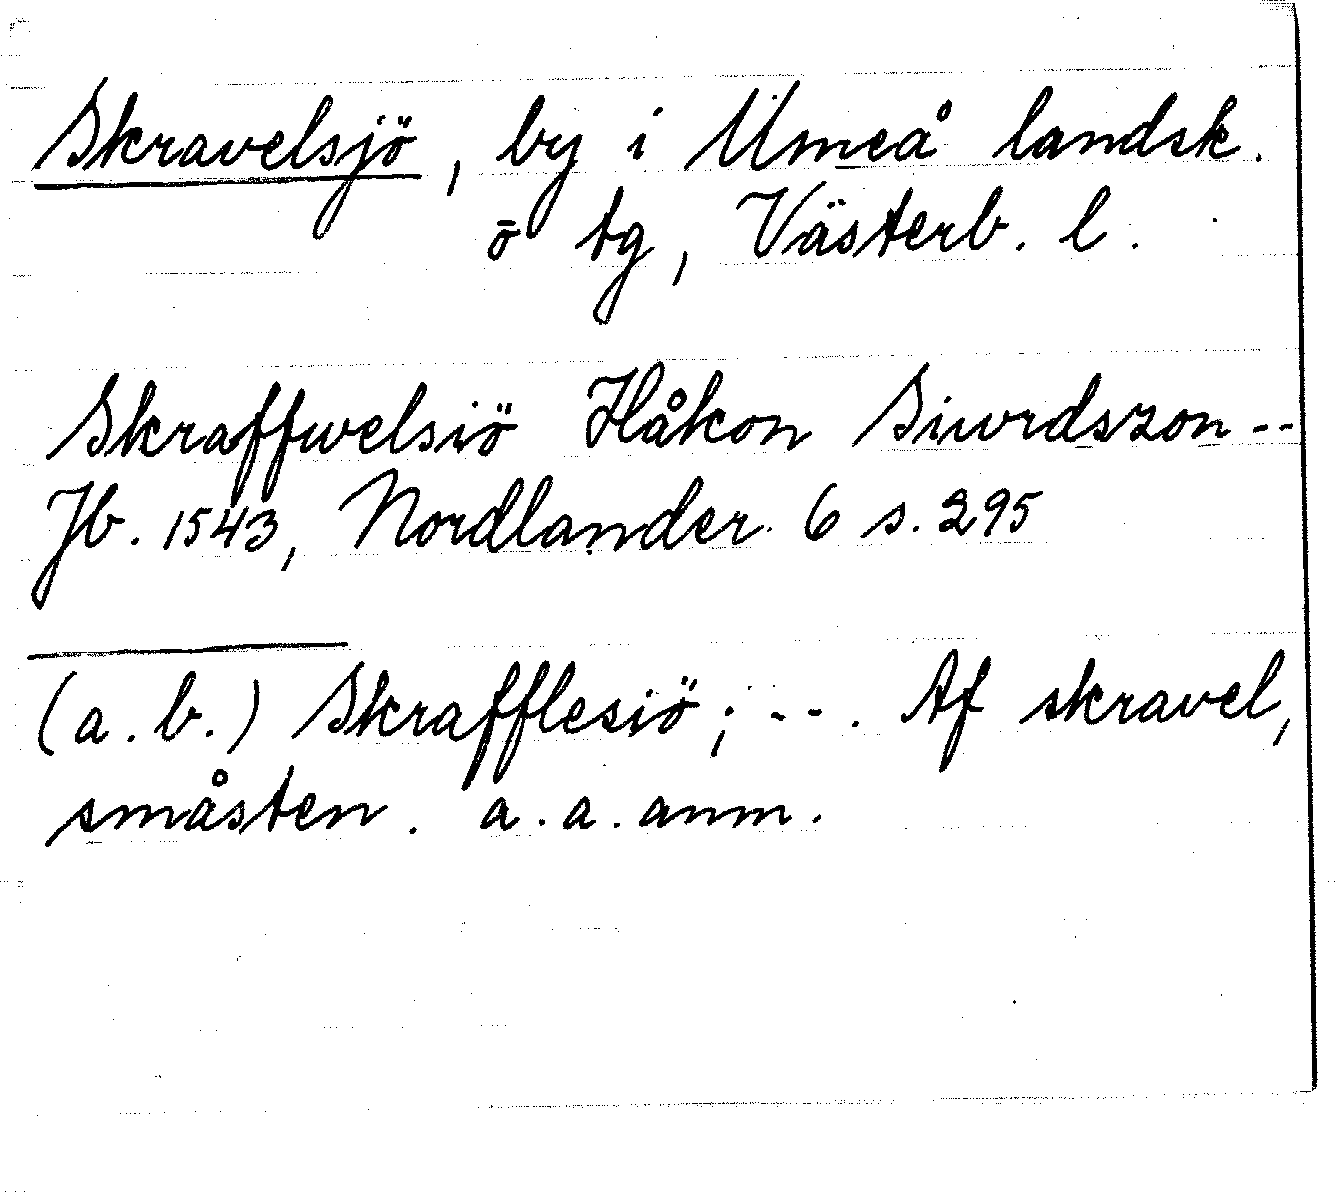 Skravelsjö, by i Umeå landsk.
o tg, Västerb. l.
Skraffwelsiö Håkon Siwrdszon --
Jb. 1543, Nordlander 6 s. 295
(a. b.) Skrafflesiö; --. Af skravel,
småsten. a. a. anm.